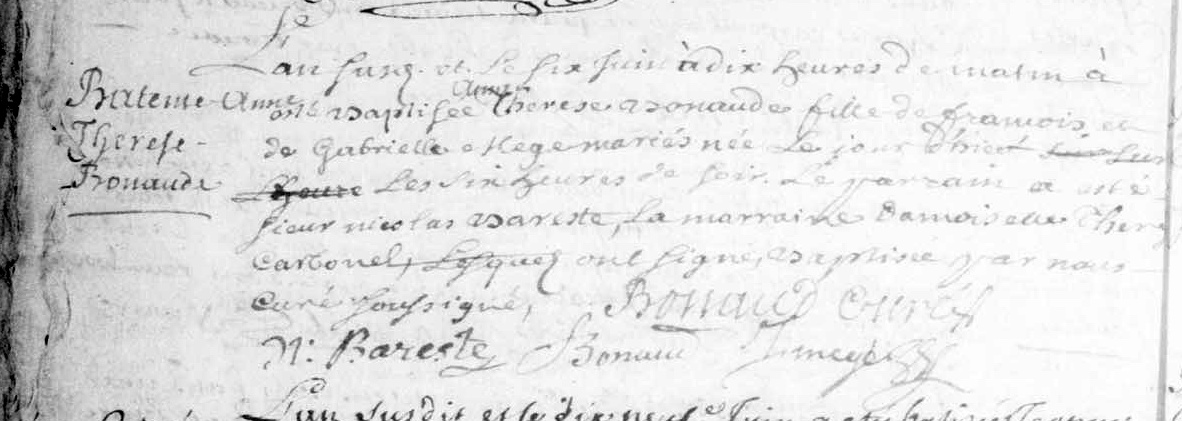 Bateme Anne
Therese
Bonaude
L'an susd. et le six juin à dix heures de matin à
esté Baptisée Anne Therese Bonaude fille de francois et
de Gabrielle mariés née le jour d'hier
L'heure Les six heures de soir. Le parrain a esté
sieur nicolas Bareste, La marraine damoiselle There
Carbonel, Lesquels ont signé, Baptisée par nous
curé soussigné, Bonaud Curé
N. Bareste Bonaud
L'an susdit et le dix neuf Juin a été